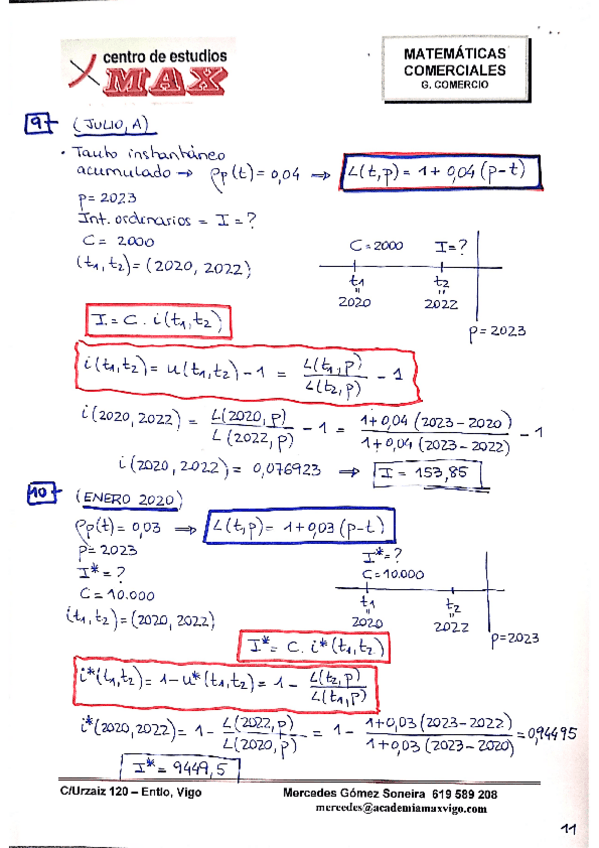 centro de estudios
MAX
MATEMÁTICAS
COMERCIALES
G. COMERCIO
9- (JULIO, A)
• Tanto instantáneo
acumulado → ρp(t) = 0,04 ⇒ L(t,p) = 1 + 0,04 (p-t)
p = 2023
Int. ordinarios = I = ?
C = 2000
(t1, t2) = (2020, 2022)
C = 2000 I = ?
t1 t2
" "
2020 2022
p = 2023
I = C . i(t1,t2)
i(t1,t2) = u(t1,t2) - 1 = L(t1,p) / L(t2,p) - 1
i(2020, 2022) = L(2020, p) / L(2022, p) - 1 = 1+0,04 (2023-2020) / 1+0,04 (2023-2022) - 1
i(2020, 2022) = 0,076923 ⇒ I = 153,85
10- (ENERO 2020)
ρp(t) = 0,03 ⇒ L(t,p) = 1+0,03 (p-t)
p = 2023
I* = ?
C = 10.000
(t1, t2) = (2020, 2022)
I* = ?
C = 10.000
t1 t2
" "
2020 2022
p = 2023
I* = C. i*(t1,t2)
i*(t1,t2) = 1 - u*(t1,t2) = 1 - L(t2,p) / L(t1,p)
i*(2020,2022) = 1 - L(2022,p) / L(2020,p) = 1 - 1+0,03 (2023-2022) / 1+0,03 (2023-2020) = 0,94495
I* = 9449,5
C/Urzaiz 120 – Entlo, Vigo Mercedes Gómez Soneira 619 589 208
mercedes@academiamaxvigo.com
11